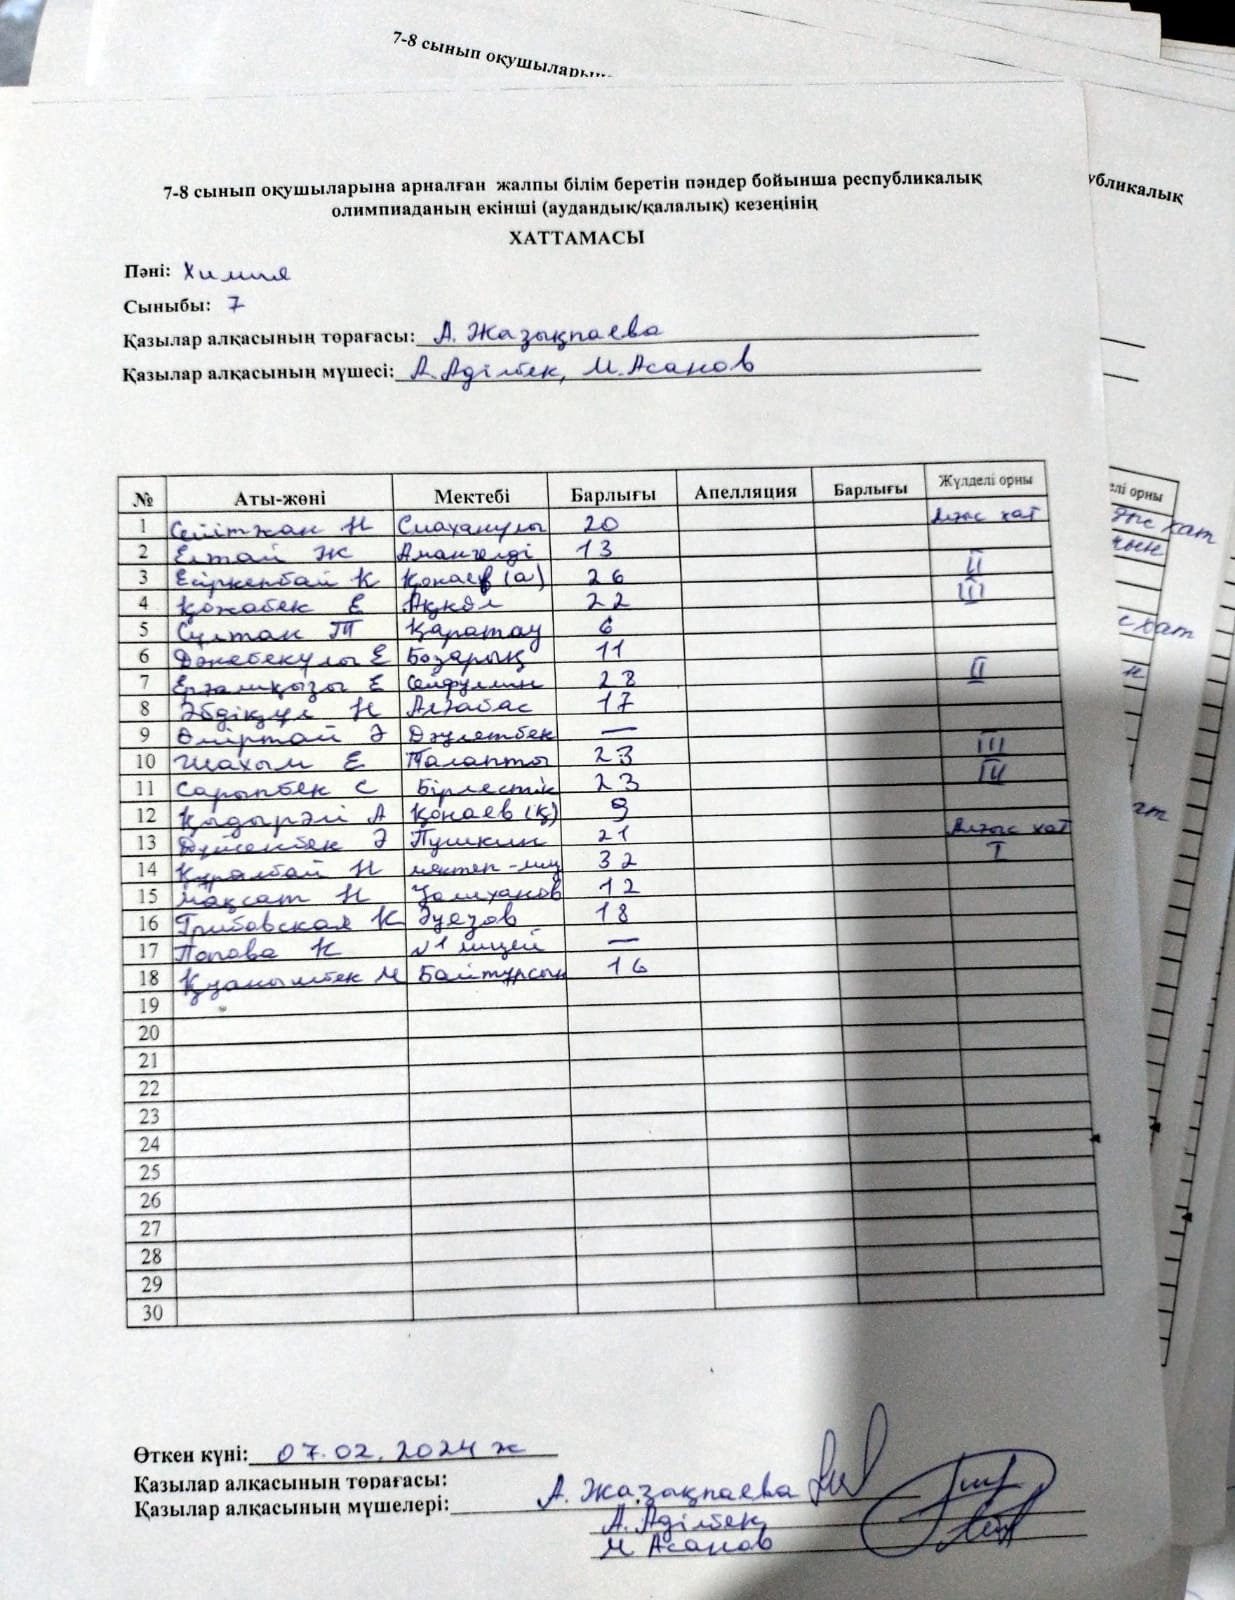 7-8 сынып оқушыларын
7-8 сынып оқушыларына арналған жалпы білім беретін пәндер бойынша республикалық
олимпиаданың екінші (аудандық/қалалық) кезеңінің
ХАТТАМАСЫ
Пәні: Химия
Сыныбы: 7
Қазылар алқасының төрағасы: А. Жазықпаева
Қазылар алқасының мүшесі: А. Әділбек, М. Асанов
№ Аты-жөні Мектебі Барлығы Апелляция Барлығы Жүлделі орны
1 Сейітжан Н 20 Алғыс хат
2 Елтай Ж Амангелді 13
3 Есіркепбай К Қонаев (а) 26 II
4 Қожабек Е Ақкөл 22 III
5 Сұлтан Т Қаратау 6
6 Дәнебекұлы Е Бозарық 11
7 Ерғалиқызы Е Сейфуллин 28 II
8 Әбдіқұл Н Алғабас 17
9 Өміртай Ә Дәулетбек —
10 Шахым Е Талапты 23 III
11 Сарыпбек С Бірлестік 23 III
12 Қыдырәлі А Қонаев (Қ) 9
13 Дүйсенбек Ә Пушкин 21 Алғыс хат
14 Құралбай Н мектеп-лиц 32 I
15 Мақсат Н Уәлиханов 12
16 Грибовская К Әуезов 18
17 Попова К №1 лицей —
18 Қуанышбек М Байтұрсын 16
19
20
21
22
23
24
25
26
27
28
29
30
Өткен күні: 07.02.2024 ж
Қазылар алқасының төрағасы:
Қазылар алқасының мүшелері: А. Жазықпаева
А. Әділбек
М Асанов
убликалық
елі орны
с хат